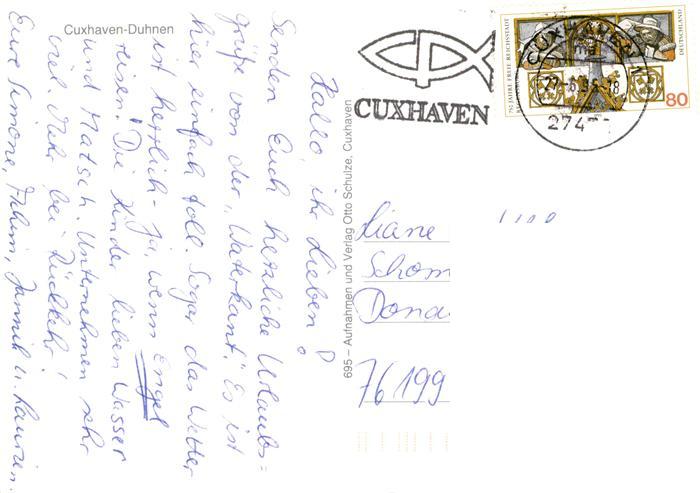 Cuxhaven-Duhnen
Hallo, ihr Lieben!
Senden Euch herzliche Urlaubs=
grüße von der „Waterkant". Es ist
hier einfach toll. Sogar das Wetter
ist herrlich - ja, wenn Engel
reisen! Die Kinder lieben Wasser
und Matsch. Unternehmen sehr
viel. Mehr bei Rückkehr!
Eure Simone, Achim, Jannik u. Laurin.
695 – Aufnahmen und Verlag Otto Schulze, Cuxhaven
CUXHAVEN
750 JAHRE FREIE REICHSSTADT
DEUTSCHLAND
80
CUXHAVEN
274
Liane
Schom
Dona
76199